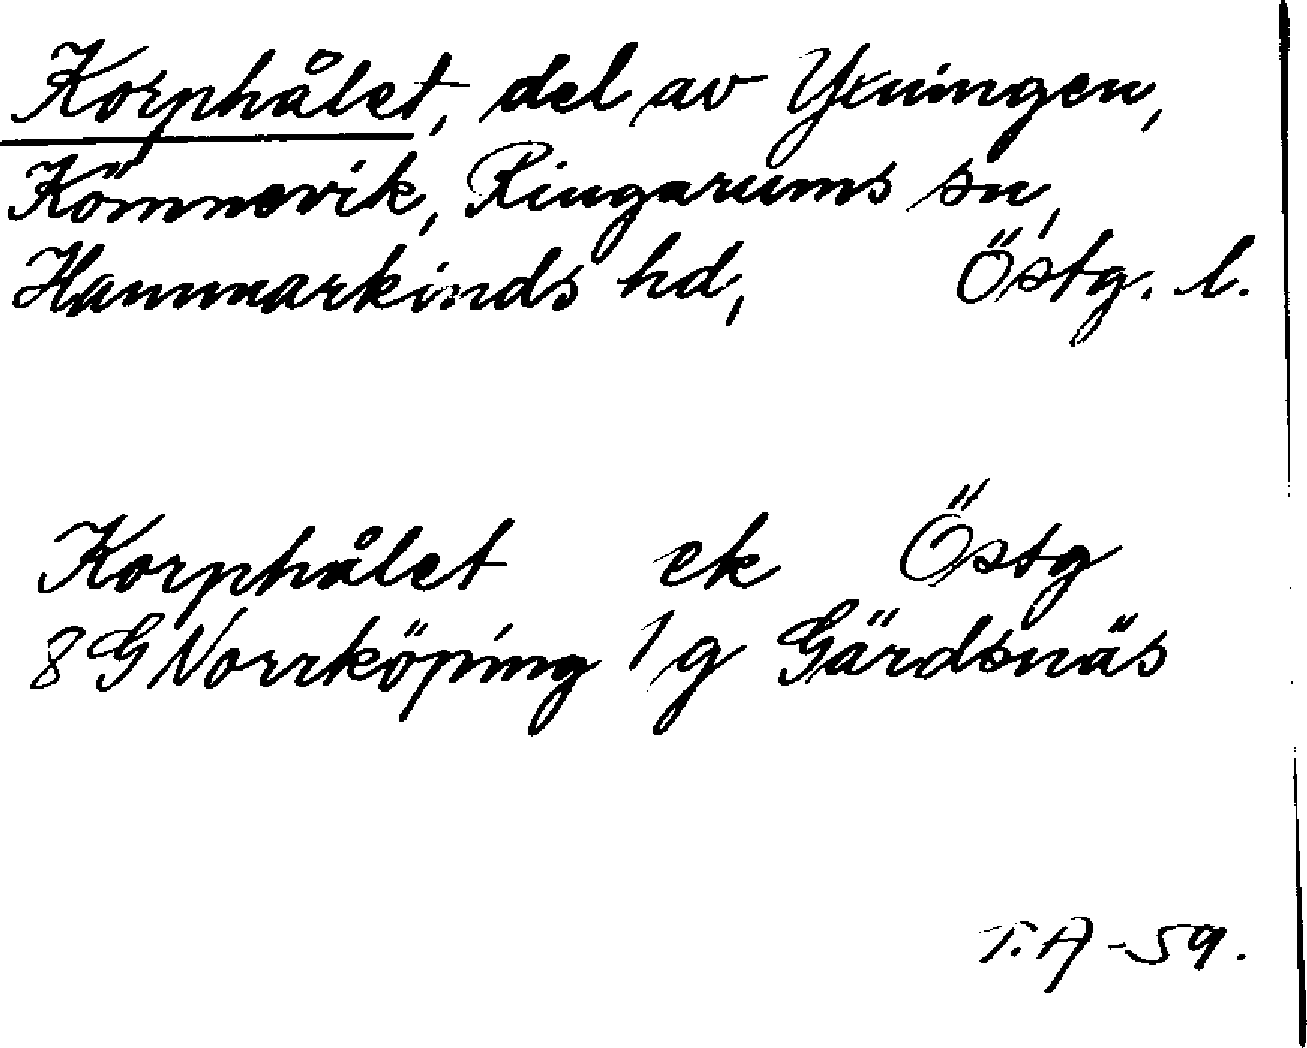 Korphålet, del av Yxningen,
Kömnevik, Ringarums sn,
Hammarkinds hd, Östg. l.
Korphålet ek Östg
8G Norrköping 1g Gärdsnäs
T.A -59.